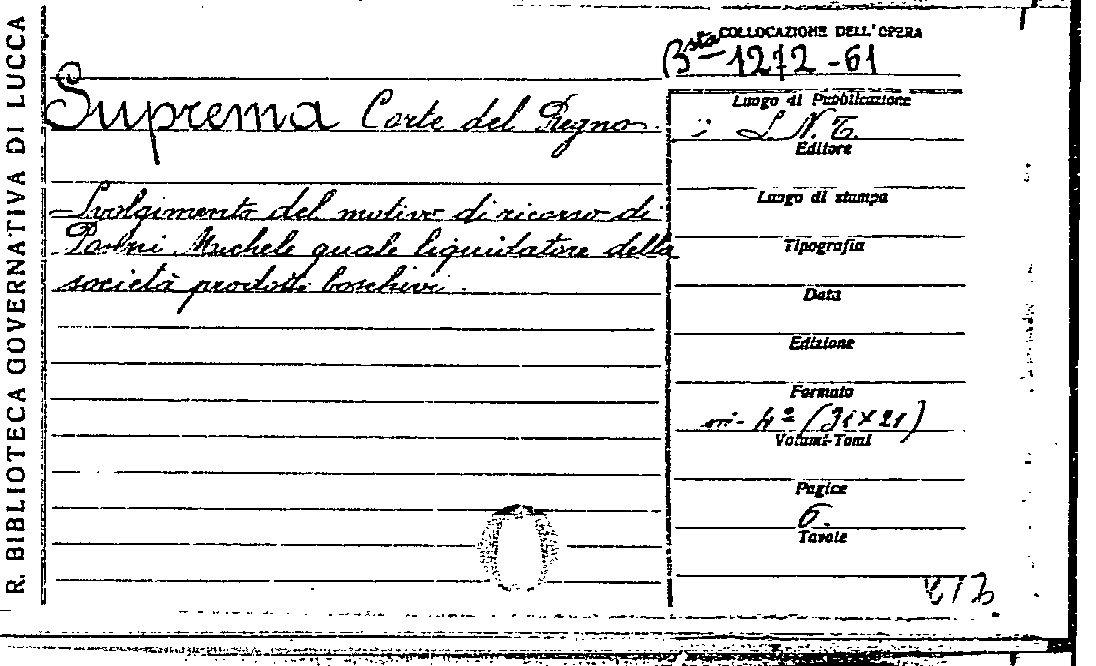 R. BIBLIOTECA GOVERNATIVA DI LUCCA
COLLOCAZIONE DELL'OPERA
Bsta 1272-61
Suprema Corte del Regno.
Svolgimento del motivo di ricorso di
Michele quale liquidatore della
società prodotti boschivi.
Luogo di Pubblicazione
: S. N. T.
Editore
Luogo di stampa
Tipografia
Data
Edizione
Formato
in- 4º (31×21)
Volumi-Tomi
Pagine
6.
Tavole